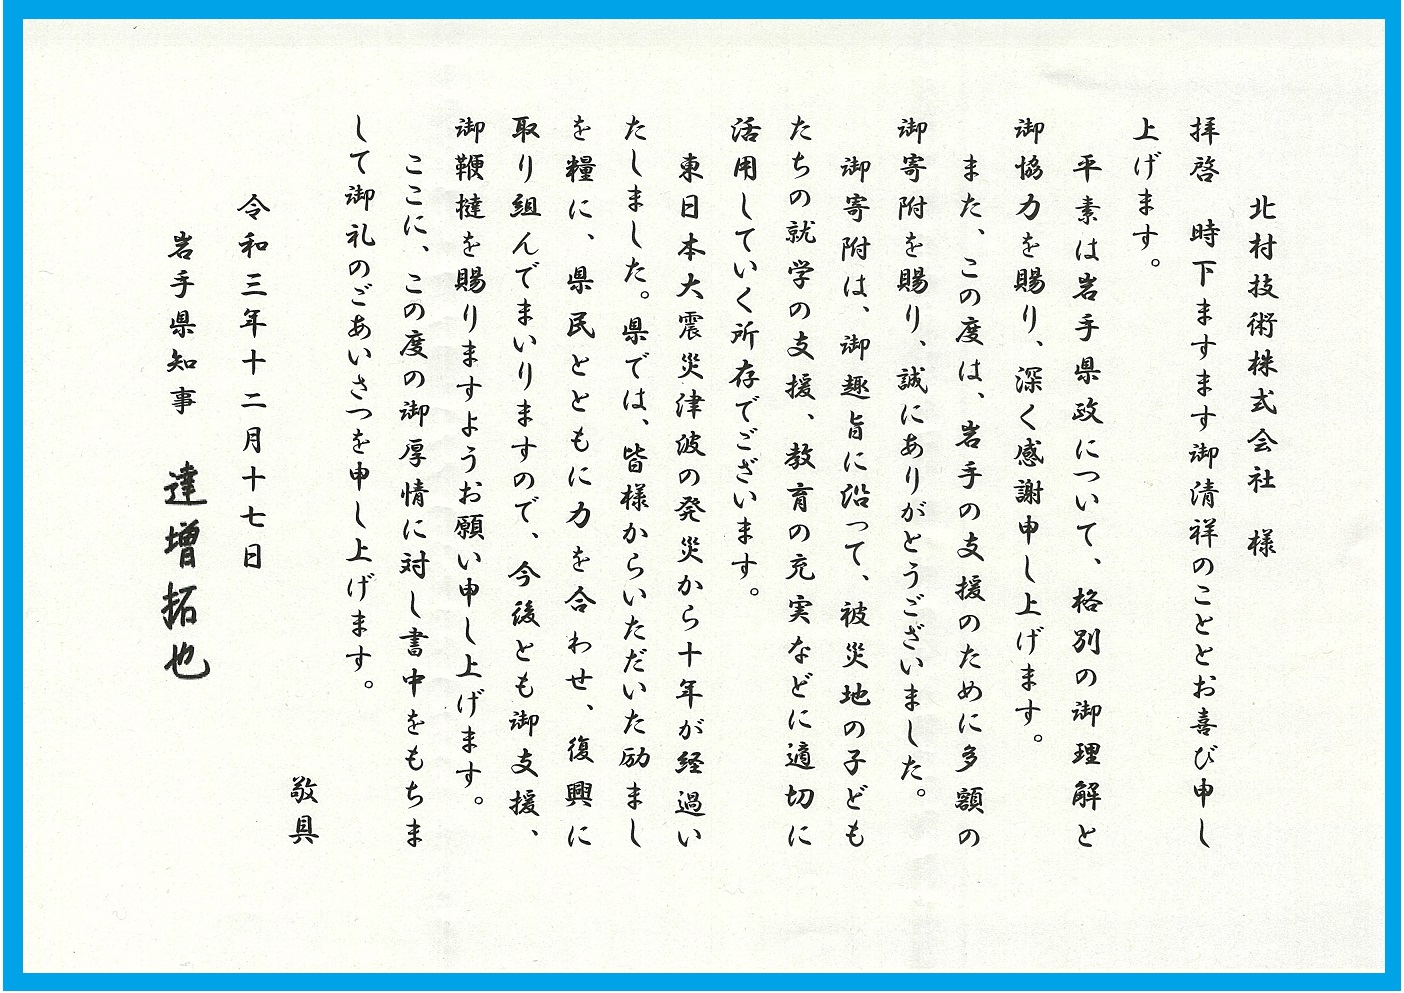 北村技術株式会社　様
拝啓　時下ますます御清祥のこととお喜び申し
上げます。
平素は岩手県政について、格別の御理解と
御協力を賜り、深く感謝申し上げます。
また、この度は、岩手の支援のために多額の
御寄附を賜り、誠にありがとうございました。
御寄附は、御趣旨に沿って、被災地の子ども
たちの就学の支援、教育の充実などに適切に
活用していく所存でございます。
東日本大震災津波の発災から十年が経過い
たしました。県では、皆様からいただいた励まし
を糧に、県民とともに力を合わせ、復興に
取り組んでまいりますので、今後とも御支援、
御鞭撻を賜りますようお願い申し上げます。
ここに、この度の御厚情に対し書中をもちま
して御礼のごあいさつを申し上げます。
敬具
令和三年十二月十七日
岩手県知事　達増拓也